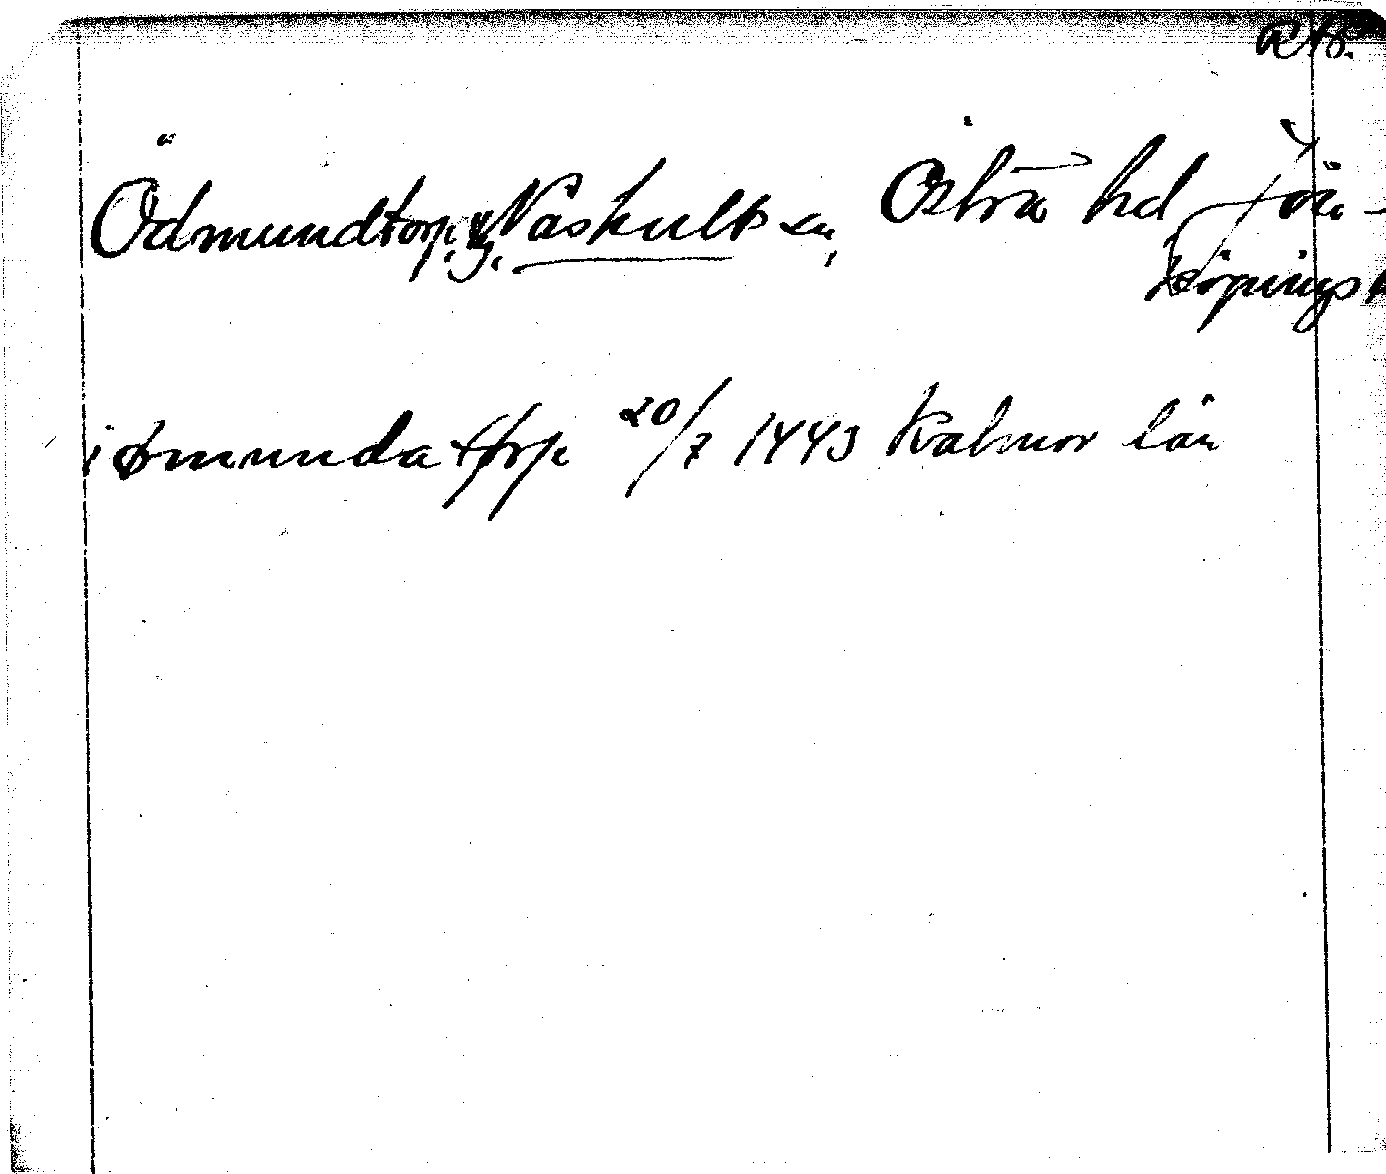 RAp.
Ödmundtorp, g. Näshults sn, Östra hd, Jön-
köpings l
i ømunda torp 20/7 1443 Kalmar län